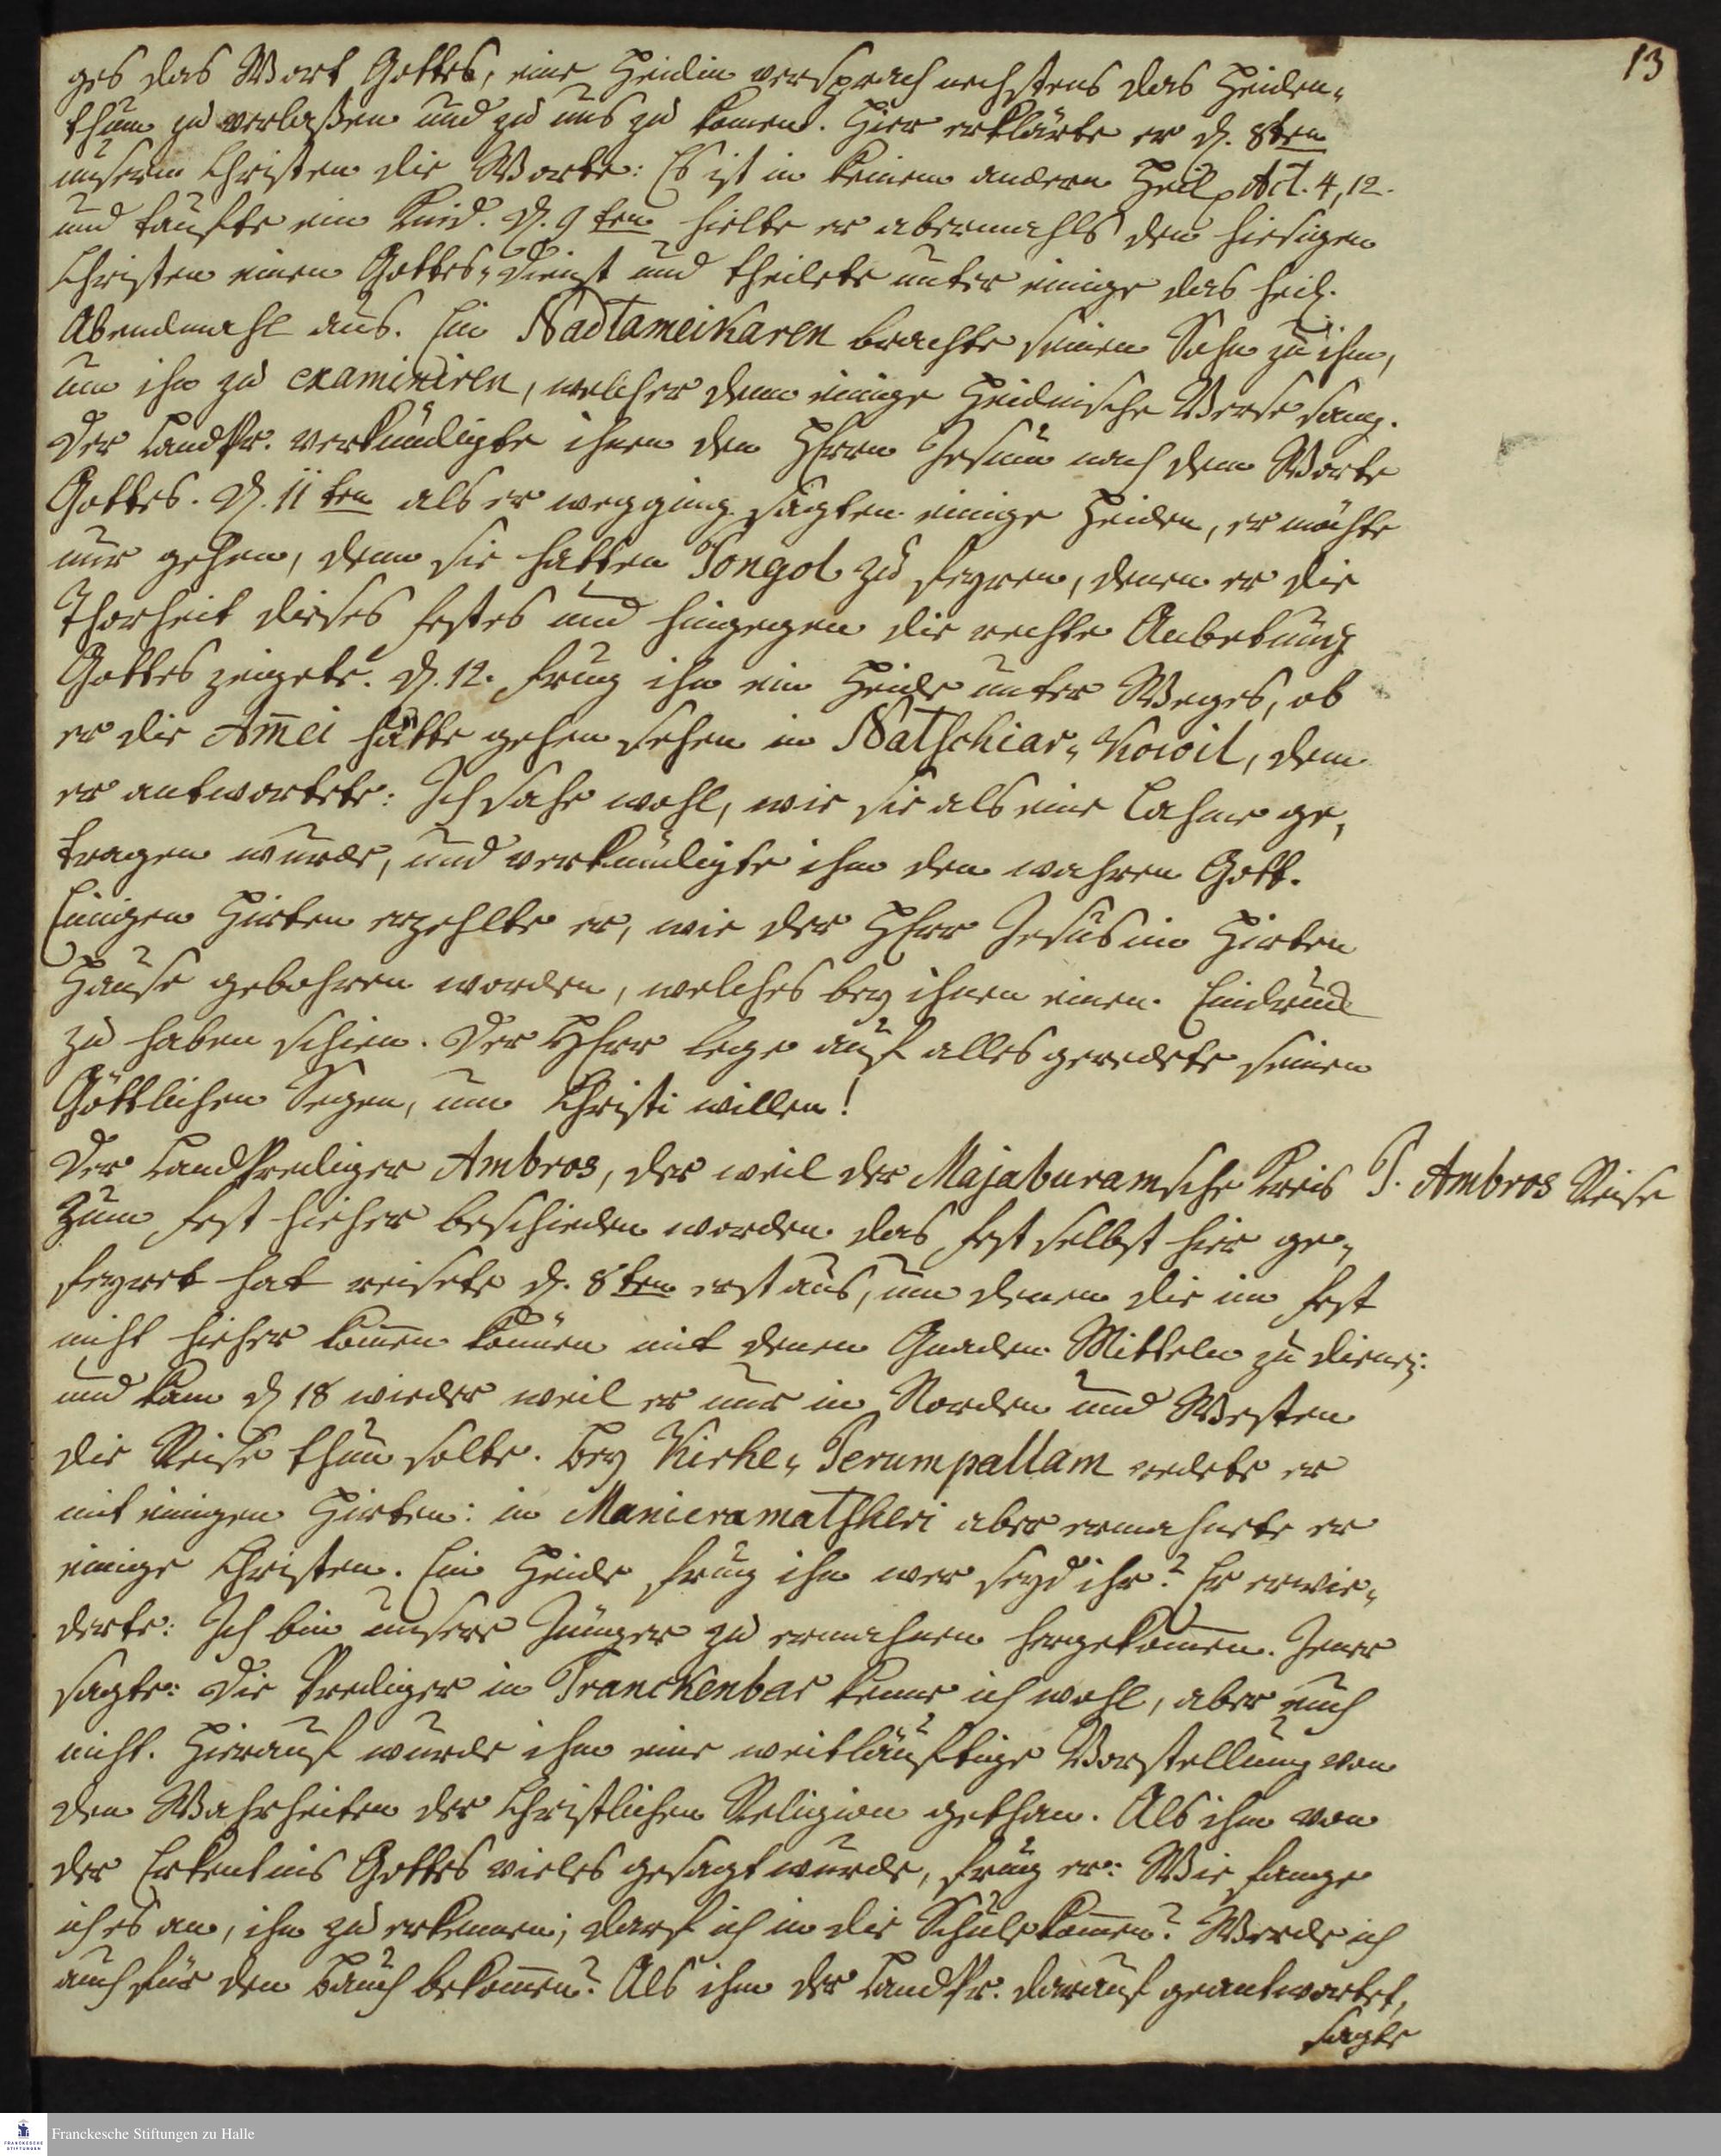 13
ges das Wort Gottes, eine Heidin versprach nechstens das Heiden-
thum zu verlaßen und zu uns zu komen. Hier erklärte er d. 8ten
unsern Christen die Worte: Es ist in keinem andern Heil Act. 4, 12.
und taufte ein Kind. D. 9ten hielte er abermahls den hiesigen
Christen einen Gottes-Dienst und theilete unter einige das heil.
Abendmahl aus. Ein Nadtameikaren brachte seinen Sohn zu ihm,
um ihn zu examiniren, welcher denn einige Heidnische Verse sang.
Der LandPr. verkündigte ihnen den HErrn Jesum nach dem Worte
Gottes. D. 11ten als er wegging sagten einige Heiden, er möchte
nur gehen, denn sie hatten Pongol zu feyren, denen er die
Thorheit dieses Festes und hingegen die rechte Anbetung
Gottes zeigete. D. 12. frug ihn ein Heide unter Weges, ob
er die Am̄ei hätte gehen sehen in Natschiar-Kowil, dem
er antwortete: Ich sahe wohl, wie sie als eine Lahme ge-
tragen wurde, und verkündigte ihm den wahren Gott.
Einigen Hirten erzehlte er, wie der HErr Jesus im Hirten
Hause gebohren worden, welches bey ihnen einen Eindruck
zu haben schien. Der HErr lege auf alles geredete seinen
Göttlichen Segen, um Christi willen!
Der LandPrediger Ambros, der weil der Majaburamsche Kreis
P. Ambros Reise
zum Fest hieher beschieden worden das Fest selbst hier ge-
feyret hat reisete d. 8ten erst aus, um denen die im Fest
nicht hieher kom̄en können mit denen Gnaden Mitteln zu dienen:
und kam d 18 wieder weil er nur in Norden und Westen
die Reise thun solte. Bey Kirhe-Perumpallam redete er
mit einigen Hirten: in Manieramatshleri aber ermahnete er
einige Christen. Ein Heide frug ihn wer seyd ihr? Er erwie-
derte: Ich bin unsere Jünger zu ermahnen hergekom̄en. Jener
sagte: Die Prediger in Tranckenbar kenne ich wohl, aber euch
nicht. Hierauf wurde ihm eine weitläuftige Vorstellung von
den Wahrheiten der Christlichen Religion gethan. Als ihm von
der Erkentnis Gottes vieles gesagt wurde, frug er: Wie fange
ich es an, ihn zu erkennen; darf ich in die Schule kom̄en? Werde ich
auch für den Bauch bekom̄en? Als ihm der LandPr. darauf geantwortet,
sagte
Franckesche Stiftungen zu Halle